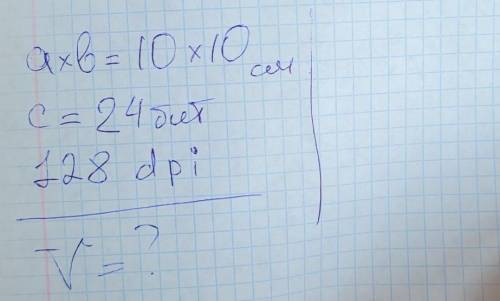 a×b = 10 × 10 см
c = 24 бит
128 dpi
V = ?